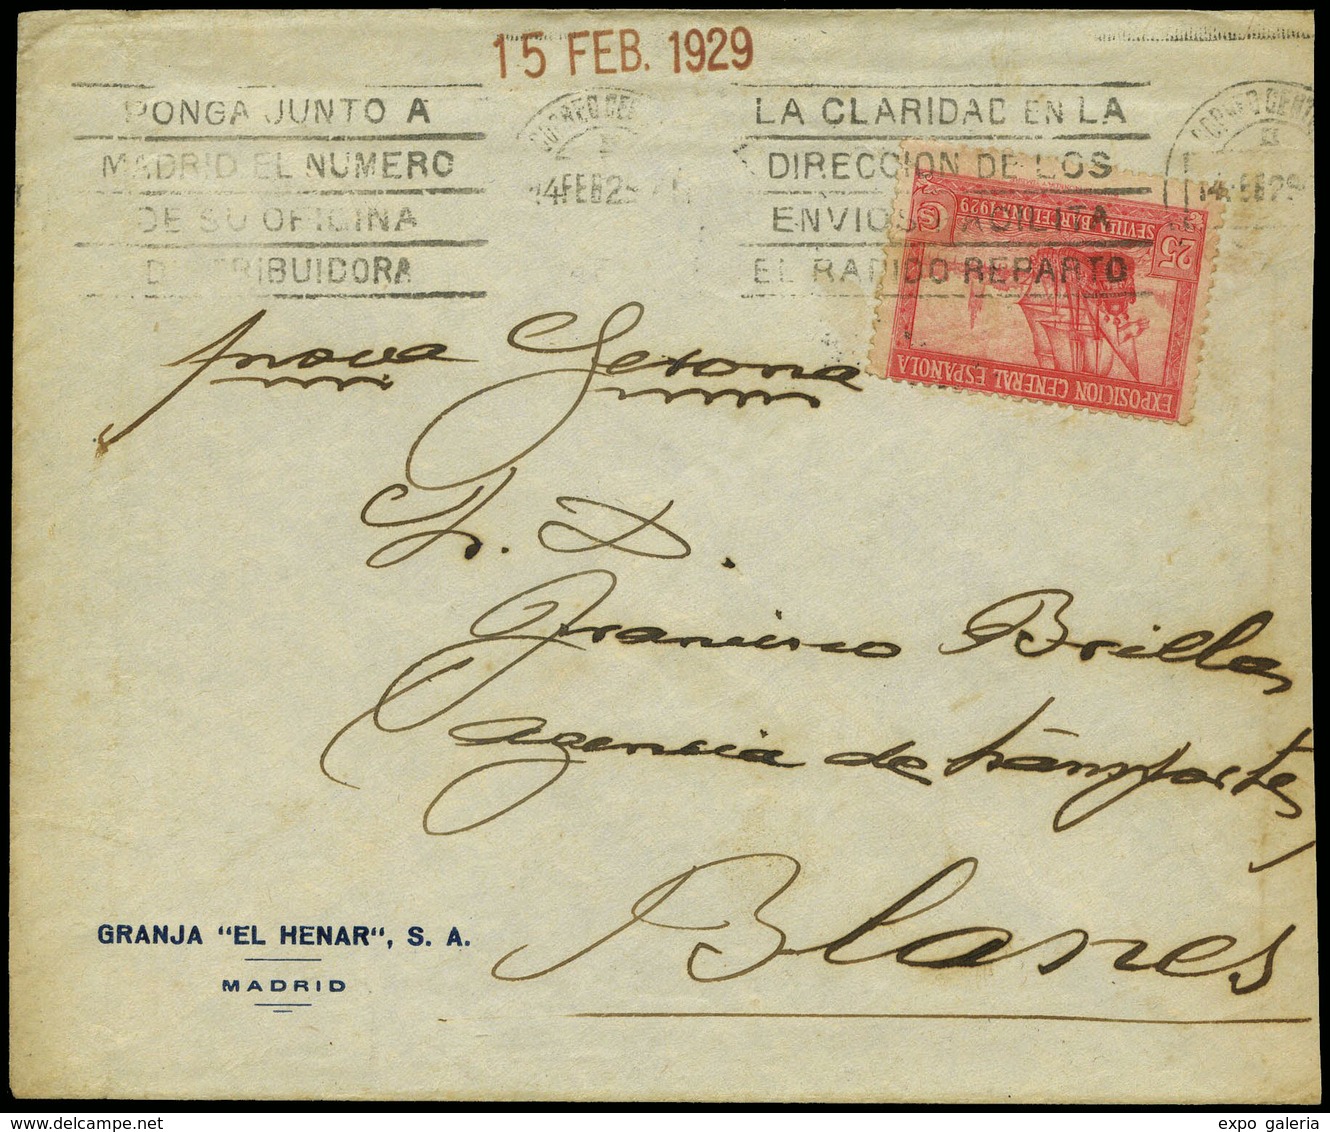 15 FEB. 1929
PONGA JUNTO A
MADRID EL NUMERO
DE SU OFICINA
DISTRIBUIDORA
CORREO CEN
14 FEB 29
LA CLARIDAD EN LA
DIRECCION DE LOS
ENVIOS FACILITA
EL RAPIDO REPARTO
CORREO CENT
14 FEB 29
EXPOSICION GENERAL ESPAÑOLA
SEVILLA BARCELONA 1929
25 CS
prova Gerona
S. D.
Francisco Brillas
agencia de transportes
Blanes
GRANJA "EL HENAR", S. A.
MADRID
expo galeria